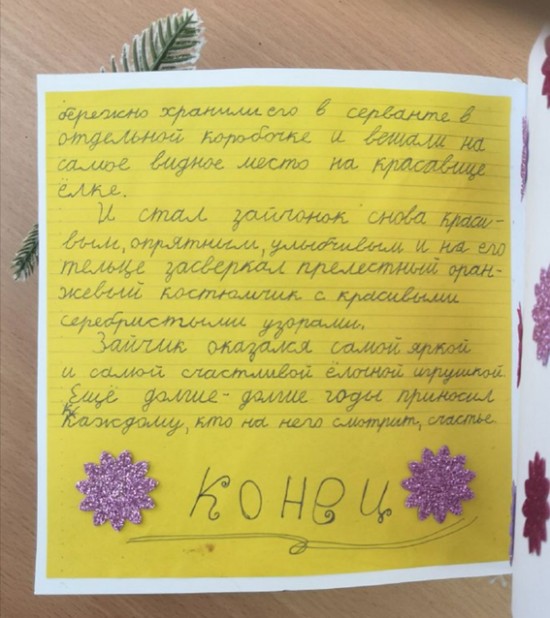 бережно хранили его в серванте в
отдельной коробочке и вешали на
самое видное место на красавице
ёлке.
И стал зайчонок снова краси-
вым, опрятным, улыбчивым и на его
тельце засверкал прелестный оран-
жевый костюмчик с красивыми
серебристыми узорами.
Зайчик оказался самой яркой
и самой счастливой ёлочной игрушкой.
Ещё долгие-долгие годы приносил
каждому, кто на него смотрит, счастье.
КОНЕЦ